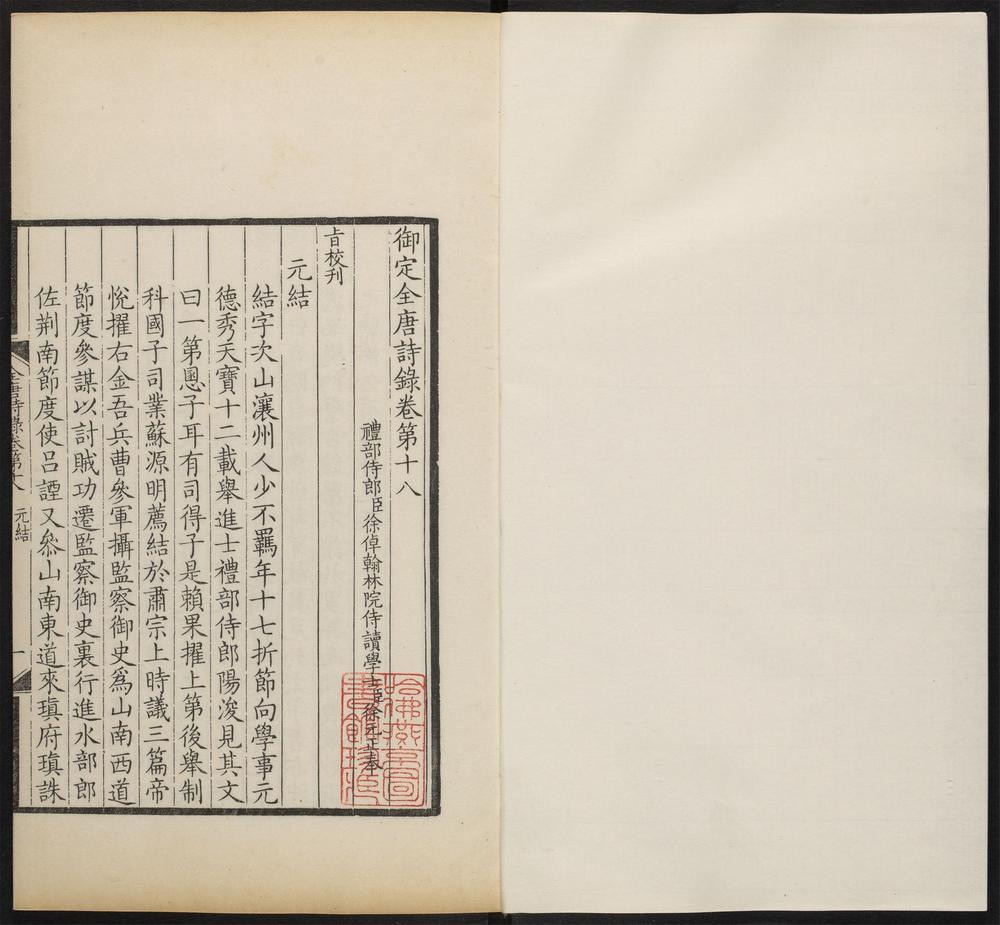 御定全唐詩錄卷第十八
禮部侍郎臣徐倬翰林院侍讀學士臣徐元正奉
旨校刊
元結
結字次山瀼州人少不羈年十七折節向學事元
德秀天寶十二載舉進士禮部侍郎陽浚見其文
曰一第慁子耳有司得子是賴果擢上第後舉制
科國子司業蘇源明薦結於肅宗上時議三篇帝
悅擢右金吾兵曹參軍攝監察御史為山南西道
節度參謀以討賊功遷監察御史裏行進水部郎
佐荆南節度使呂諲又叅山南東道來瑱府瑱誅
全唐詩錄卷第十八 元結 一
哈佛燕京圖
書館珍藏